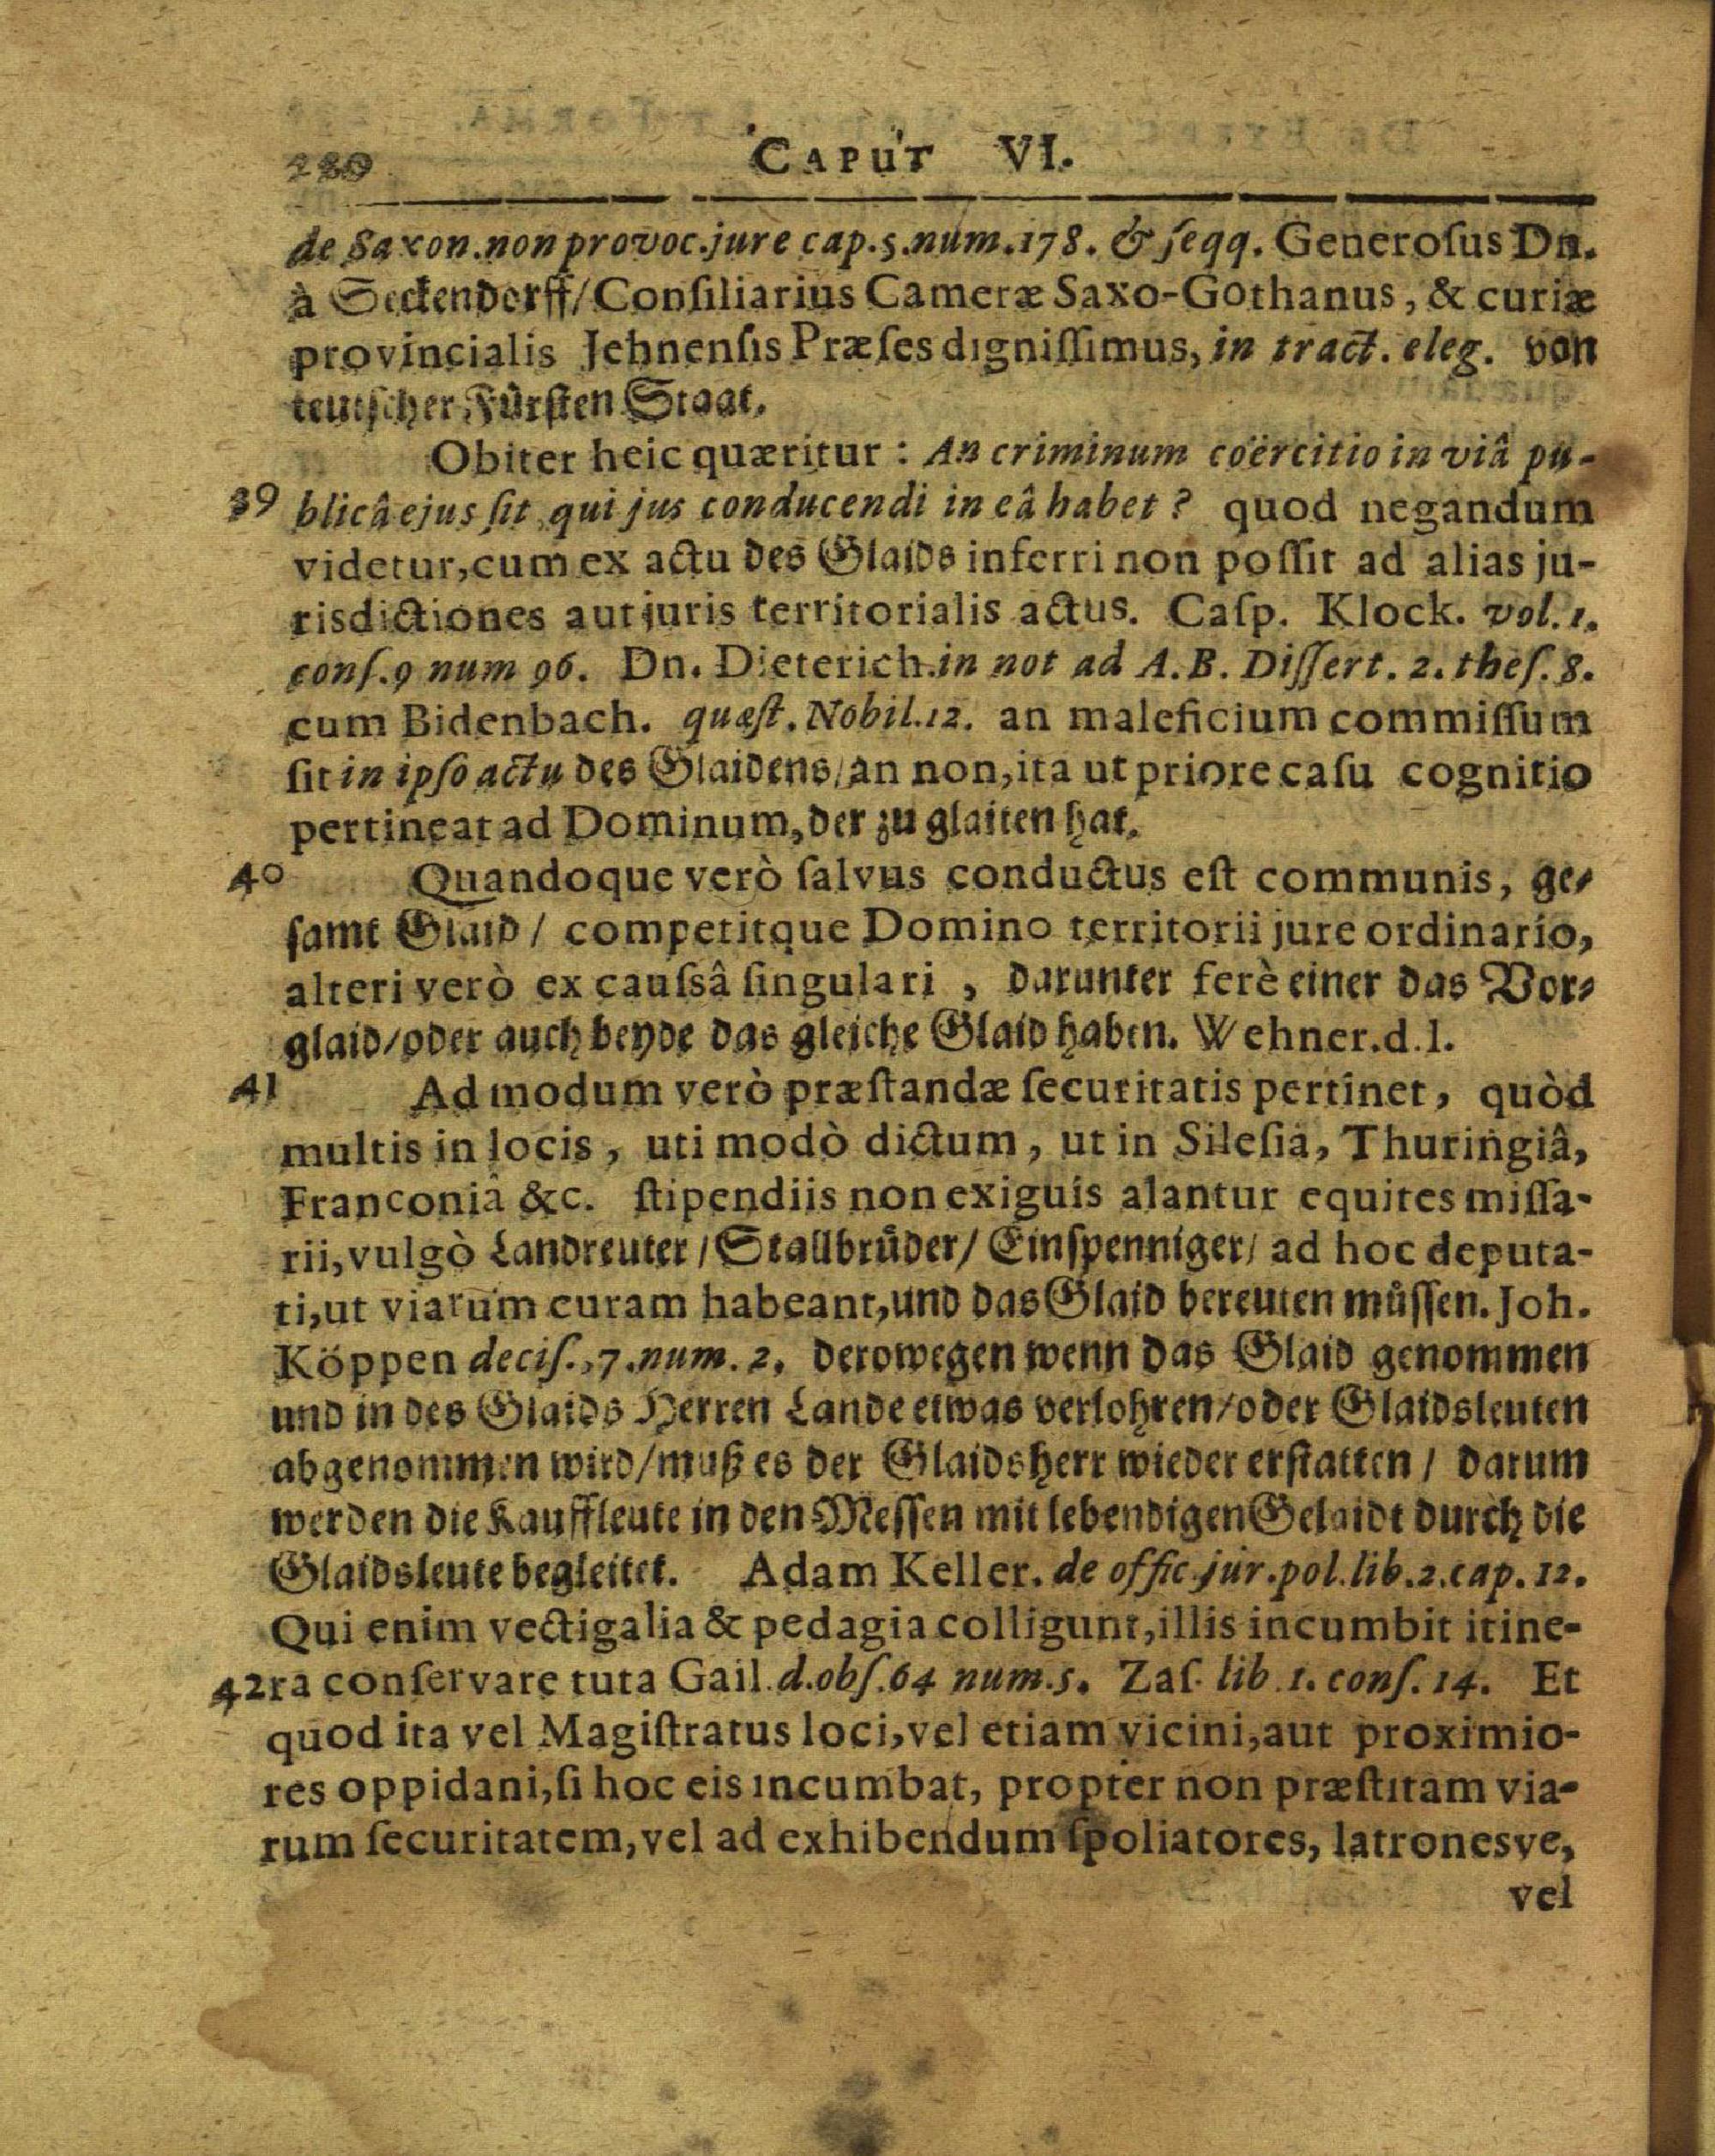 280 CAPUT VI.
de Saxon.non provoc.jure cap.5.num.178. & ſeqq. Generoſus Dn.
à Seckendorff/ Conſiliarius Cameræ Saxo-Gothanus, & curiæ
provincialis Jehnenſis Præſes digniſſimus, in tract. eleg. von
teutſcher Fürſten Staat.
Obiter heic quæritur : An criminum coërcitio in viâ pu-
39 blicâ ejus ſit qui jus conducendi in eâ habet ? quod negandum
videtur, cum ex actu des Glaids inferri non poſſit ad alias ju-
risdictiones aut juris territorialis actus. Caſp. Klock. vol. 1.
conſ.9 num 96. Dn. Dieterich.in not ad A.B. Diſſert. 2. theſ. 8.
cum Bidenbach. quæſt. Nobil.12. an maleficium commiſſum
ſit in ipſo actu des Glaidens/ an non, ita ut priore caſu cognitio
pertineat ad Dominum, der zu glaiten hat.
40 Quandoque verò ſalvus conductus eſt communis, ge-
ſamt Glaid/ competitque Domino territorii jure ordinario,
alteri verò ex cauſsâ ſingulari , darunter ferè einer das Vor-
glaid/oder auch beyde das gleiche Glaid haben. Wehner.d.l.
41 Ad modum verò præſtandæ ſecuritatis pertinet, quòd
multis in locis, uti modò dictum, ut in Sileſia, Thuringiâ,
Franconiâ &c. ſtipendiis non exiguis alantur equites miſſa-
rii, vulgò Landreuter/ Stallbrüder/ Einſpenniger/ ad hoc deputa-
ti, ut viarum curam habeant, und das Glaid bereuten müſſen. Joh.
Köppen deciſ.,7.num. 2. derowegen wenn das Glaid genommen
und in des Glaids Herren Lande etwas verlohren/oder Glaidsleuten
abgenommen wird/muß es der Glaidsherr wieder erſtatten/ darum
werden die Kauffleute in den Meſſen mit lebendigen Gelaidt durch die
Glaidsleute begleitet. Adam Keller. de offic.jur.pol.lib.2.cap.12.
Qui enim vectigalia & pedagia colligunt, illis incumbit itine-
42 ra conſervare tuta Gail.d.obſ.64 num.5. Zaſ. lib.1.conſ.14. Et
quod ita vel Magiſtratus loci, vel etiam vicini, aut proximio-
res oppidani, ſi hoc eis incumbat, propter non præſtitam via-
rum ſecuritatem, vel ad exhibendum ſpoliatores, latronesve,
vel